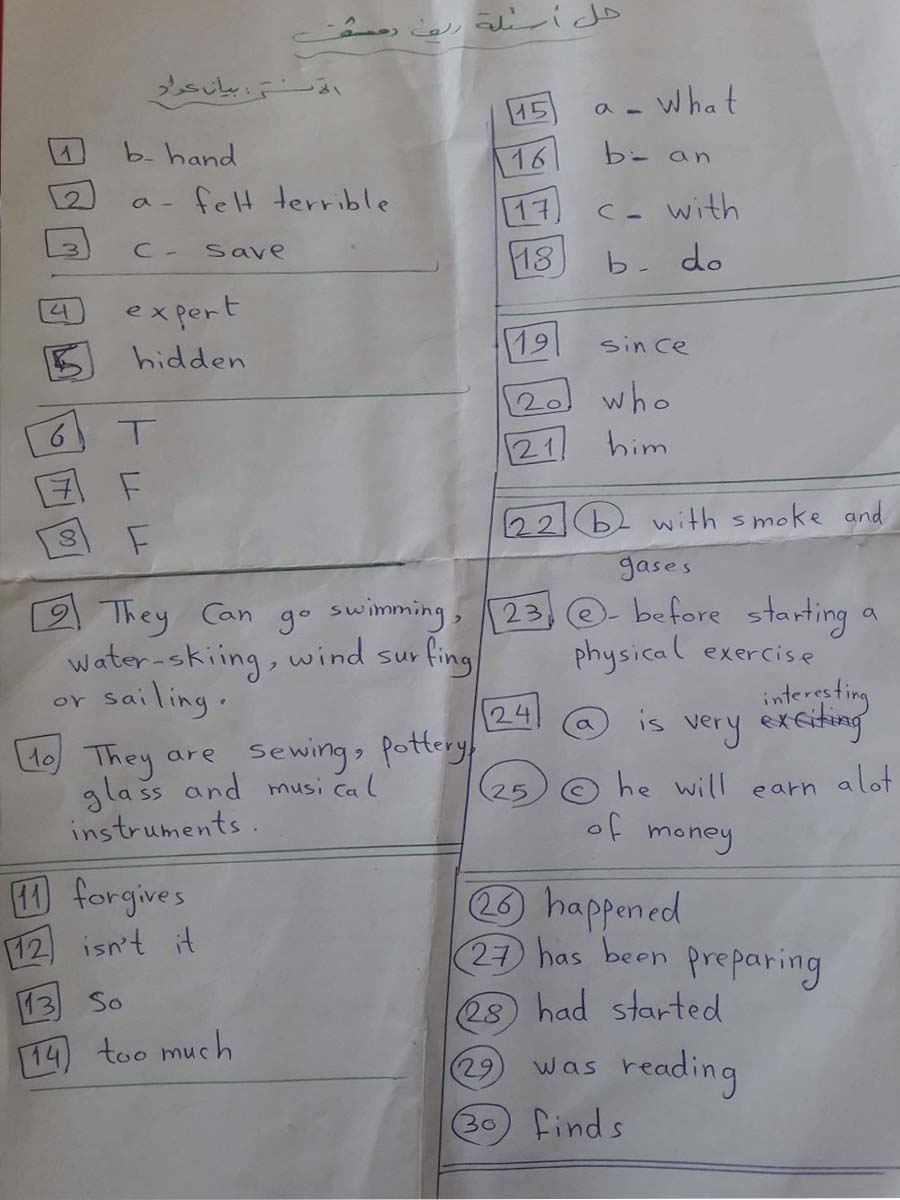 حل أسئلة ريف دمشق
الآنسة: بيان عواد
1 b- hand
2 a - felt terrible
3 c - save
4 expert
5 hidden
6 T
7 F
8 F
9 They Can go swimming,
water-skiing, wind surfing
or sailing.
10 They are sewing, pottery,
glass and musical
instruments.
11 forgives
12 isn't it
13 So
14 too much
15 a - What
16 b - an
17 c - with
18 b - do
19 since
20 who
21 him
22 b- with smoke and
gases
23 e- before starting a
physical exercise
interesting
24 a is very exciting
25 c he will earn alot
of money
26 happened
27 has been preparing
28 had started
29 was reading
30 finds